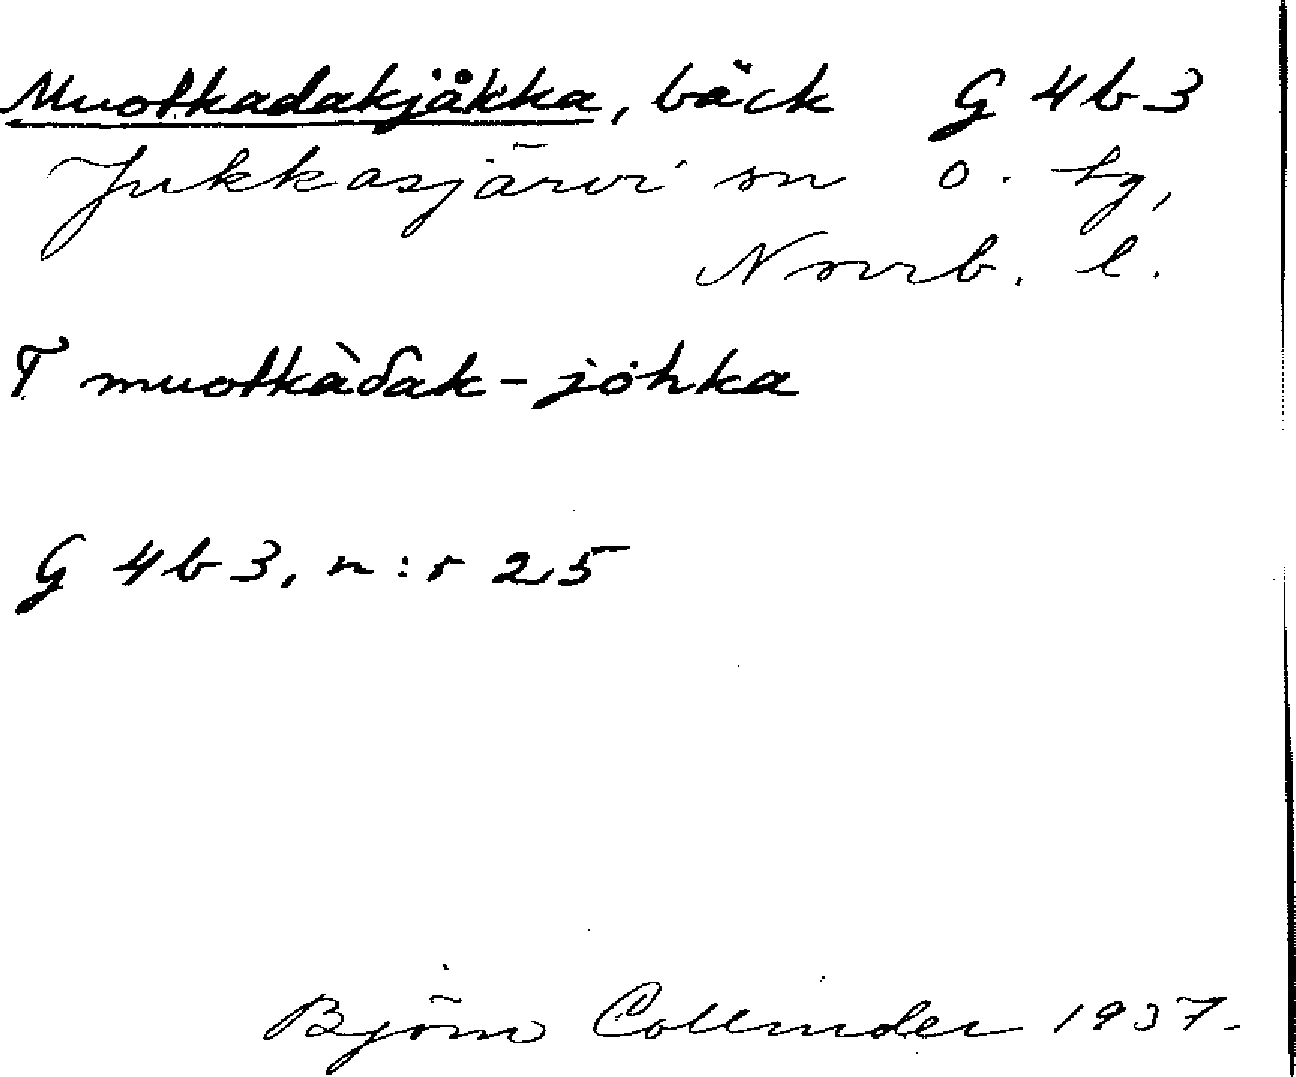 Muotkadakjåkka, bäck G 4b3
Jukkasjärvi sn o. tg,
Norrb. l.
T muotkàδak-johka
G 4b3, n:r 25
Björn Collinder 1937.